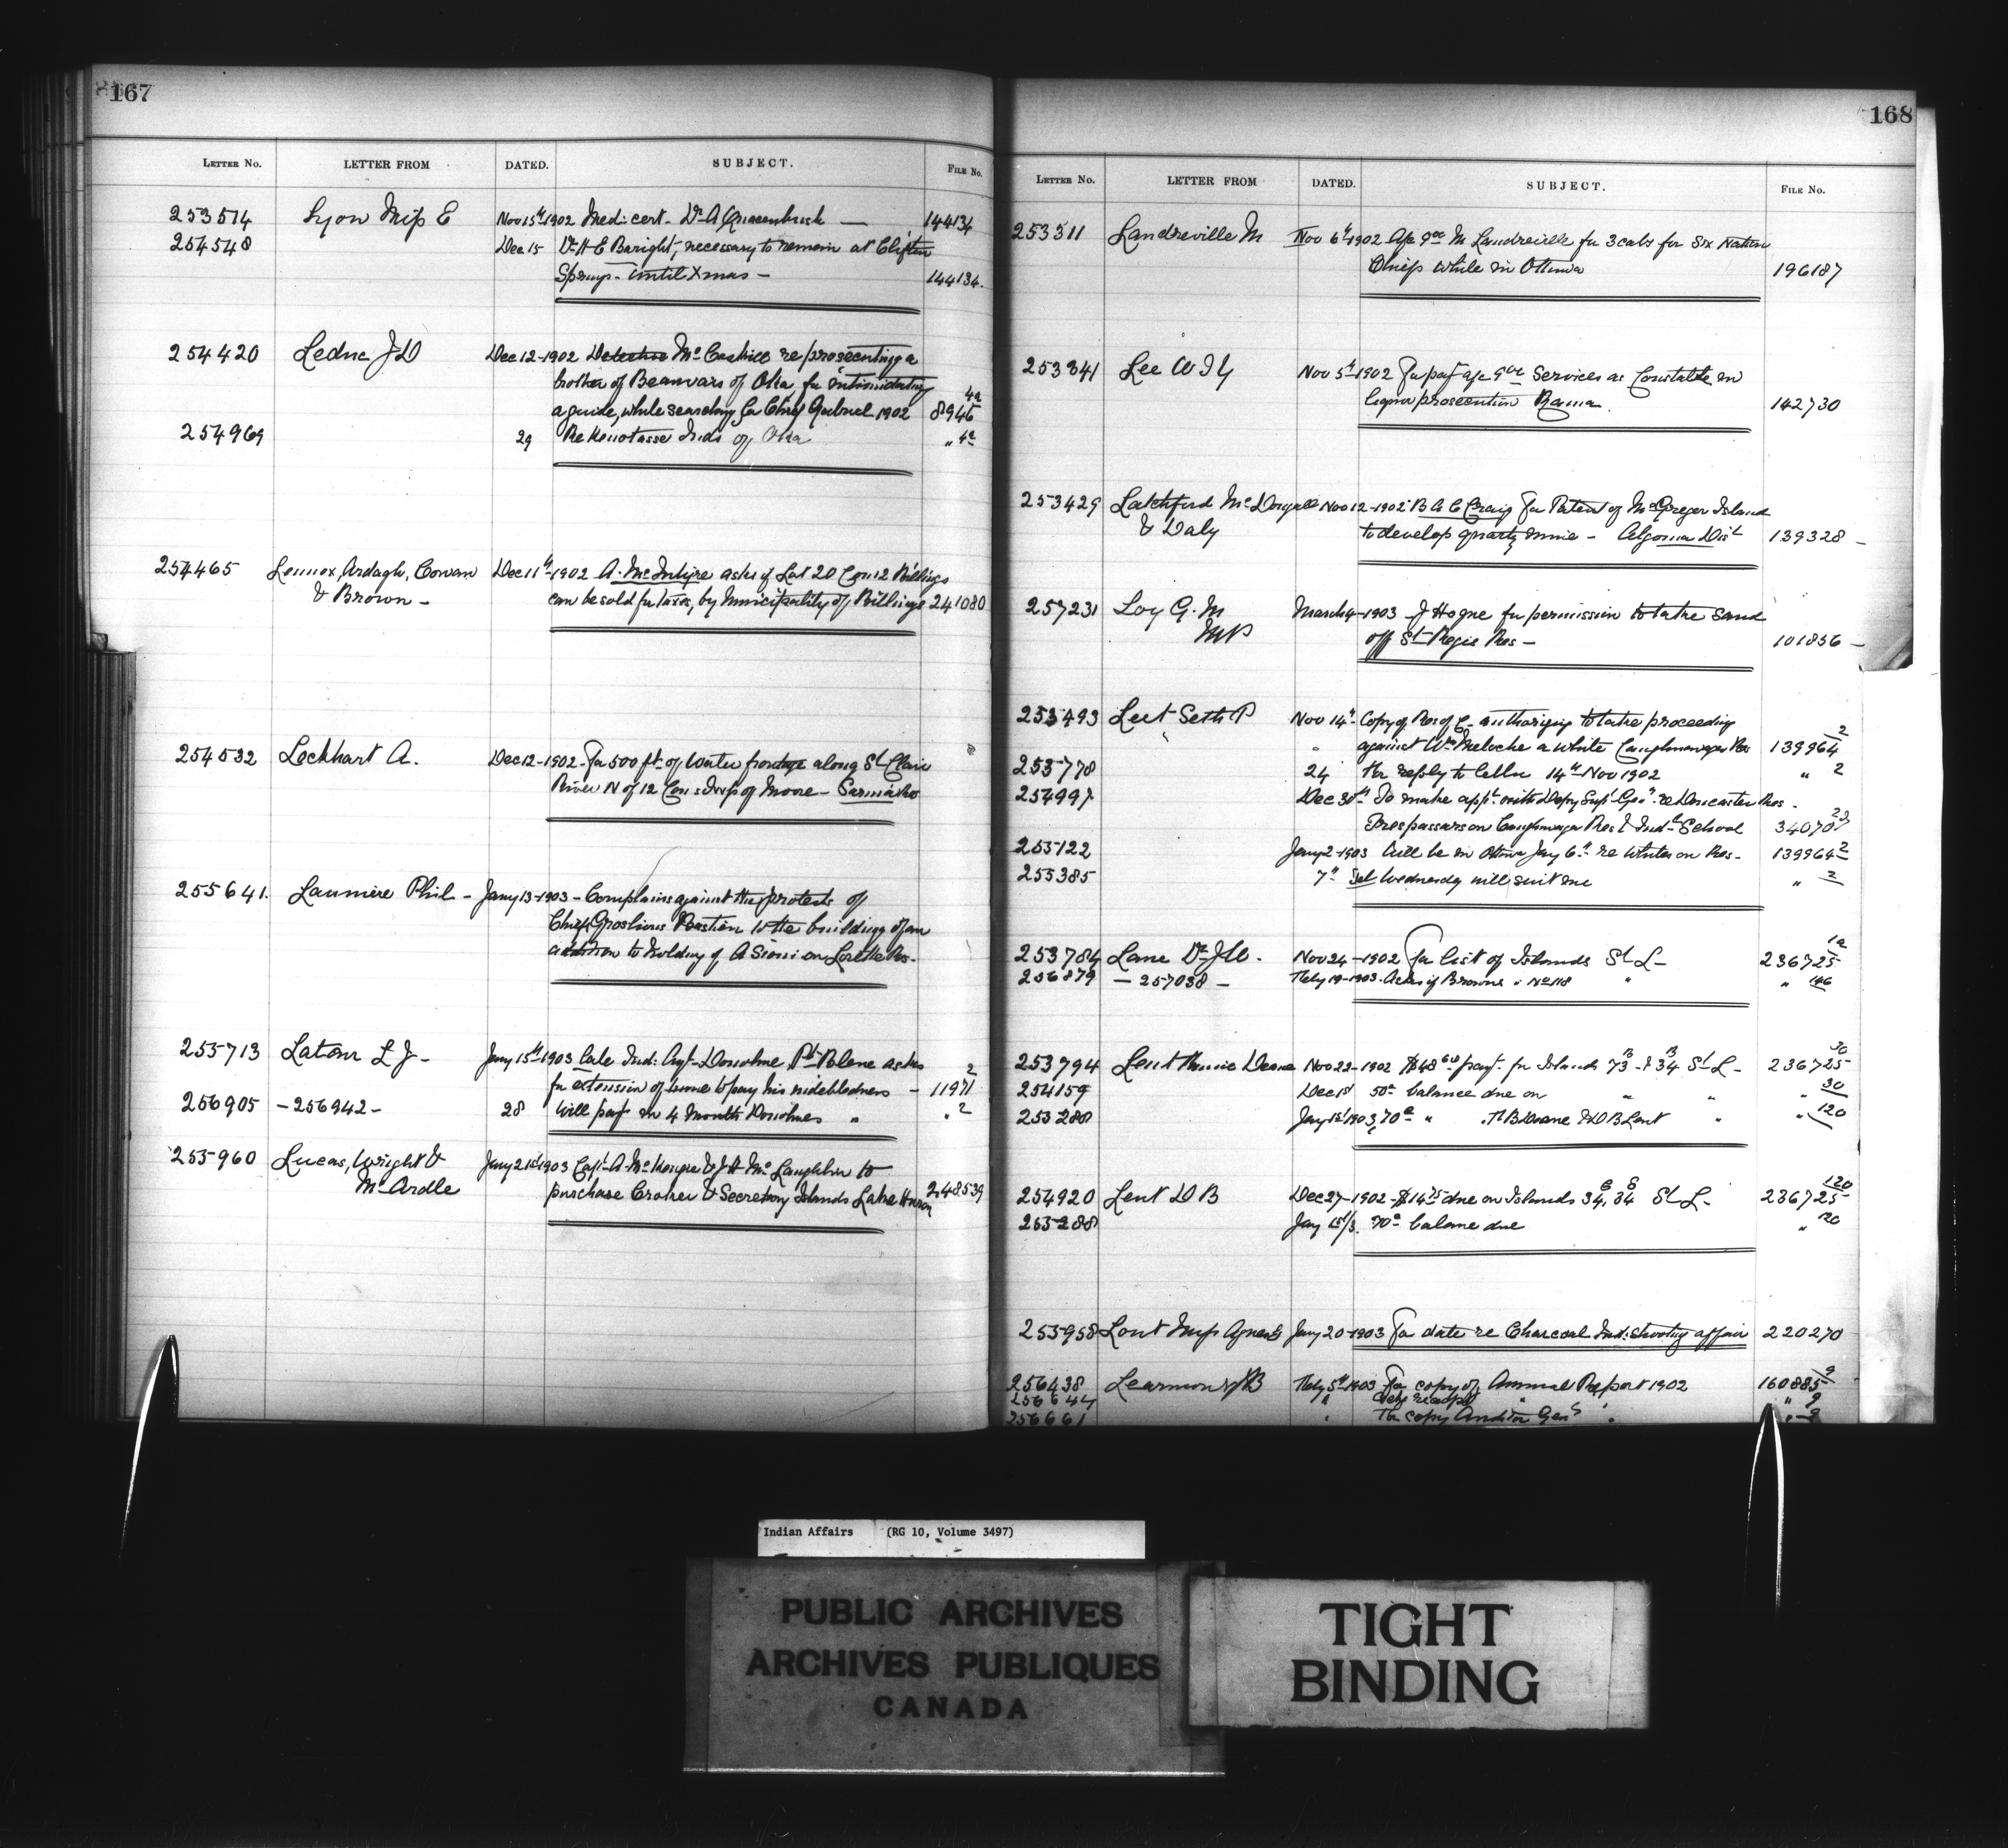 167
LETTER No. LETTER FROM DATED. SUBJECT. FILE No.
253514 Lyon Miss E Nov 15th 1902 Med: cert - Dr A Quackenbush — 144134
254548 Dec 15 Dr H C Baright, necessary to remain at Clifton
Springs - until Xmas - 144134.
254420 Leduc J D Dec 12-1902 Detective Mc Caskill re prosecuting a
brother of Beauvais of Oka, for intimidating 4a
a guide, while searching for Chief Gabriel 1902 8946
254969 29 Re Inds of Oka " 4a
254465 Lennox, Ardagh, Cowan Dec 11th-1902 A. McIntyre asks if Lot 20 Con 12 Billings
& Brown - can be sold for taxes, by Municipality of Billings 241080
254532 Lockhart A. Dec 12-1902 - For 500 ft. of Water frontage along St Clair
River N of 12 Con: Twp of Moore - Sarnia
255641. Laumiere Phil - Jany 13-1903 - Complains against the protests of
Chief Groslouis Bastien to the building of an
addition to holding of A Sioui on Lorette Res.
255713 Latour L J - Jany 15th-1903 late Ind: Agt- Donohue Pt Blene asks 2
for extension of time to pay his indebtedness - 11971
256905 - 256942 - 28 Will pay in 4 months Donohues " " 2
255960 Lucas, Wright & Jany 21st 1903 Capt A. McKenzie & J H McLaughlin to
McArdle purchase Croker & Secretary Islands Lake Huron 248539
168
LETTER No. LETTER FROM DATED. SUBJECT. FILE No.
253311 Landreville M Nov 6th 1902 M Landreville for 3 cabs for Six Nation
Chiefs while in Ottawa 196187
253341 Lee W Nov 5th 1902 For pay Services as Constable in
liquor prosecution Rama. 142730
253429 Latchford McDougall Nov 12-1902 B A C Craig For Patent of McGregor Island
& Daly to develop quartz mine - Algoma Dist 139328 -
257231 Loy G. M March 4-1903 J Hogue for permission to take Sand
MP off St Regis Res - 101856 -
253493 Leet Seth P Nov 14th- Copy of Res of C- authorizing to take proceeding 2
" against Wm Meloche a white Caughnawaga Res 139964
253778 24 For reply to letter 14th Nov 1902 " 2
254997 Dec 30th To make appt. with Depy Supt Gen. re Doncaster Res.
Trespassers on Caughnawaga Res & Ind- School 34070
255122 Jany 2-1903 Will be in Ottawa Jany 6th re Whites on Res - 139964 2
255385 7th Wednesday will suit me " 2
253784 Lane Dr J W. Nov 24-1902 For list of Islands St L- 236725 1a
256879 - 257038 - Feby 19-1903. Asks if Browns " No 118 " " 146
253794 Lent Deane Nov 22-1902 $48 60 payt for Islands 73 B & 34 B St L- 236725 30
254159 Dec 18 50c balance due on " " " 30
255288 Jany 1st 1903, 70c " T B Deane & D B Lent " " 120
254920 Lent D B Dec 27-1902 - $14 75 due on Islands 34, 34 St L- 236725 120
255288 Jany 1st/3. 70c balance due " 20
255958 Lout Miss Agnes Jany 20-1903 For date re Charcoal Ind: shooting affair 220270
256438 Learmonth B Feby 5th 1903 For copy of Annual Report 1902 160885 9
256644 " " 9
256661 " For copy Auditor Genls " " 9
Indian Affairs (RG 10, Volume 3497)
PUBLIC ARCHIVES
ARCHIVES PUBLIQUES
CANADA
TIGHT
BINDING